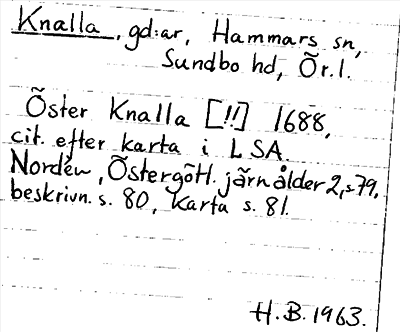 Knalla, gd:ar, Hammars sn,
Sundbo hd, Ör.l.
Öster Knalla [!!] 1688,
cit. efter karta i LSA.
Nordén, Östergötl. järnålder 2, s 79,
beskrivn. s. 80, Karta s. 81.
H.B. 1963.